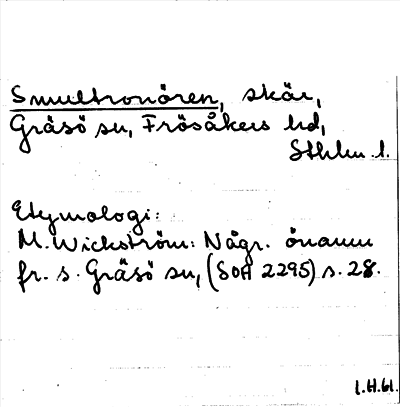 Smultronören, skär,
Gräsö sn, Frösåkers hd,
Sthlm l.
Etymologi:
M. Wickström: Någr. önamn
fr. s. Gräsö sn, (SOA 2295) s. 28.
I.H.61.